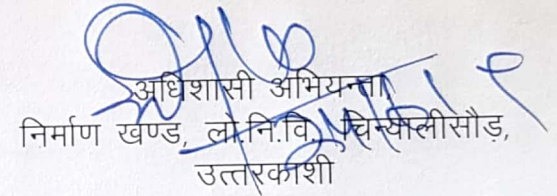 अधिशासी अभियन्ता
निर्माण खण्ड, लो.नि.वि. चिन्यालीसौड़,
उत्तरकाशी